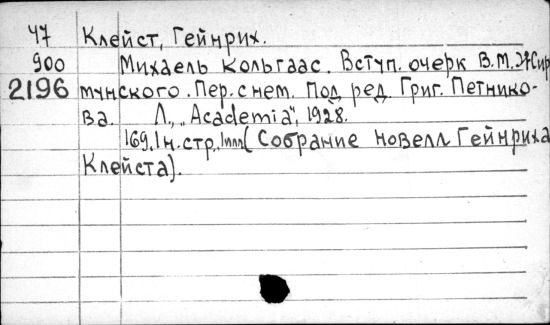 47 Клейст, Гейнрих.
900 Михаель Кольгаас. Вступ. очерк В.М.Жир
2196 мунского. Пер. с нем. Под ред. Григ. Петнико-
ва. Л., „Academia", 1928.
169, 1 н.стр., 1илл. (Собрание новелл Гейнриха
Клейста).